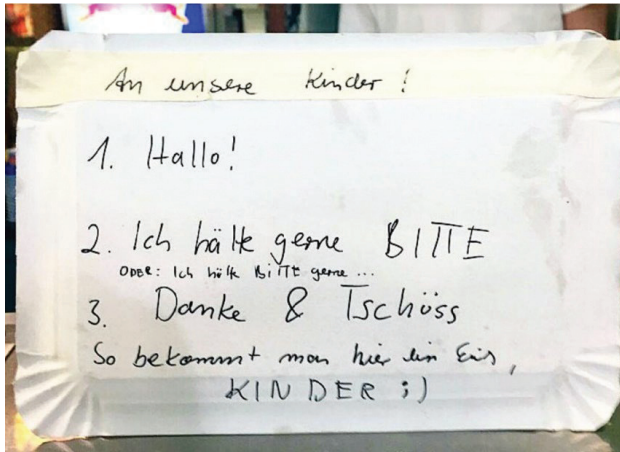 An unsere Kinder!
1. Hallo!
2. Ich hätte gerne BITTE
ODER: Ich hätte BITTE gerne ...
3. Danke & Tschöss
So bekommt man hier ein Eis,
KINDER ;)